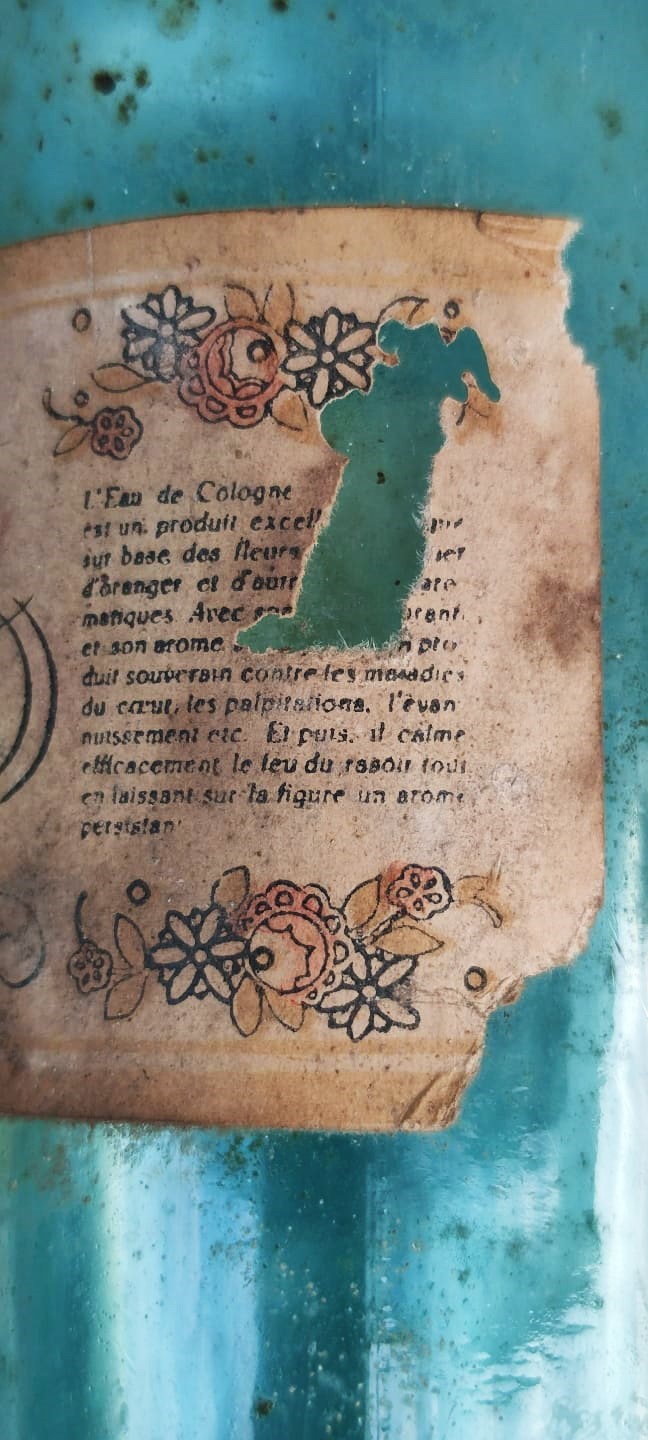 L'Eau de Cologne
est un produit
sur base des fleurs
d'oranger et
matiques Avec
et son arome pro
duit souverain contre les maladies
du cœur, les palpitations, l'évan
nuissement etc. Et puis, il calme
efficacement le feu du rasoir tout
en laissant sur la figure un arome